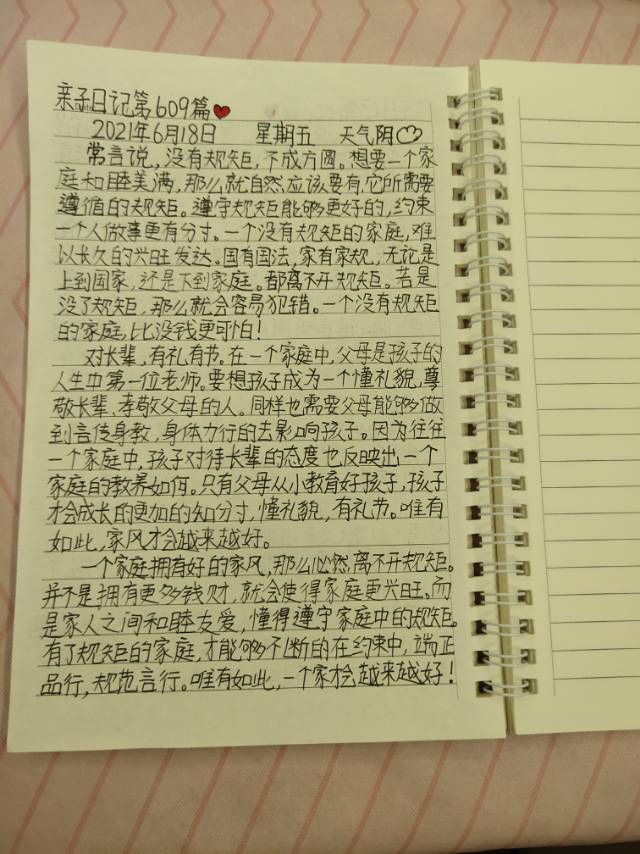 亲子日记第609篇
2021年6月18日 星期五 天气阴
常言说,没有规矩,不成方圆。想要一个家
庭和睦美满,那么就自然应该要有,它所需要
遵循的规矩。遵守规矩能够更好的,约束
一个人做事更有分寸。一个没有规矩的家庭,难
以长久的兴旺发达。国有国法,家有家规,无论是
上到国家,还是下到家庭。都离不开规矩。若是
没了规矩,那么就会容易犯错。一个没有规矩
的家庭,比没钱更可怕!
对长辈,有礼有节。在一个家庭中,父母是孩子的
人生中第一位老师。要想孩子成为一个懂礼貌,尊
敬长辈,孝敬父母的人。同样也需要父母能够做
到言传身教,身体力行的去影响孩子。因为往往
一个家庭中,孩子对待长辈的态度也反映出一个
家庭的教养如何。只有父母从小教育好孩子,孩子
才会成长的更加的知分寸,懂礼貌,有礼节。唯有
如此,家风才会越来越好。
一个家庭拥有好的家风,那么必然离不开规矩。
并不是拥有更多钱财,就会使得家庭更兴旺。而
是家人之间和睦友爱,懂得遵守家庭中的规矩。
有了规矩的家庭,才能够不断的在约束中,端正
品行,规范言行。唯有如此,一个家才会越来越好!